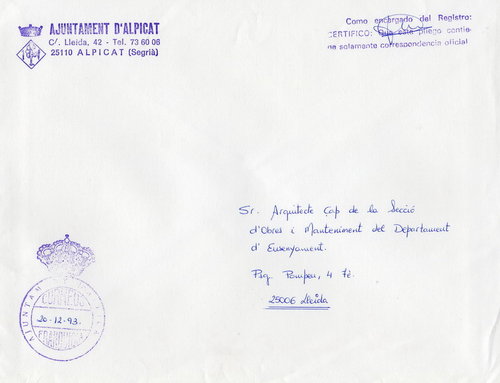 AJUNTAMENT D'ALPICAT
C/. Lleida, 42 - Tel. 73 60 06
25110 ALPICAT (Segrià)
Como encargado del Registro:
CERTIFICO: Que este pliego contie-
ne solamente correspondencia oficial
Sr. Arquitecte Cap de la Secció
d'Obres i Manteniment del Departament
d'Ensenyament.
Psg. Pompeu, 4 Té.
25006 Lleida
AJUNTAM
CORREOS
20-12-93.
FRANQUICIA